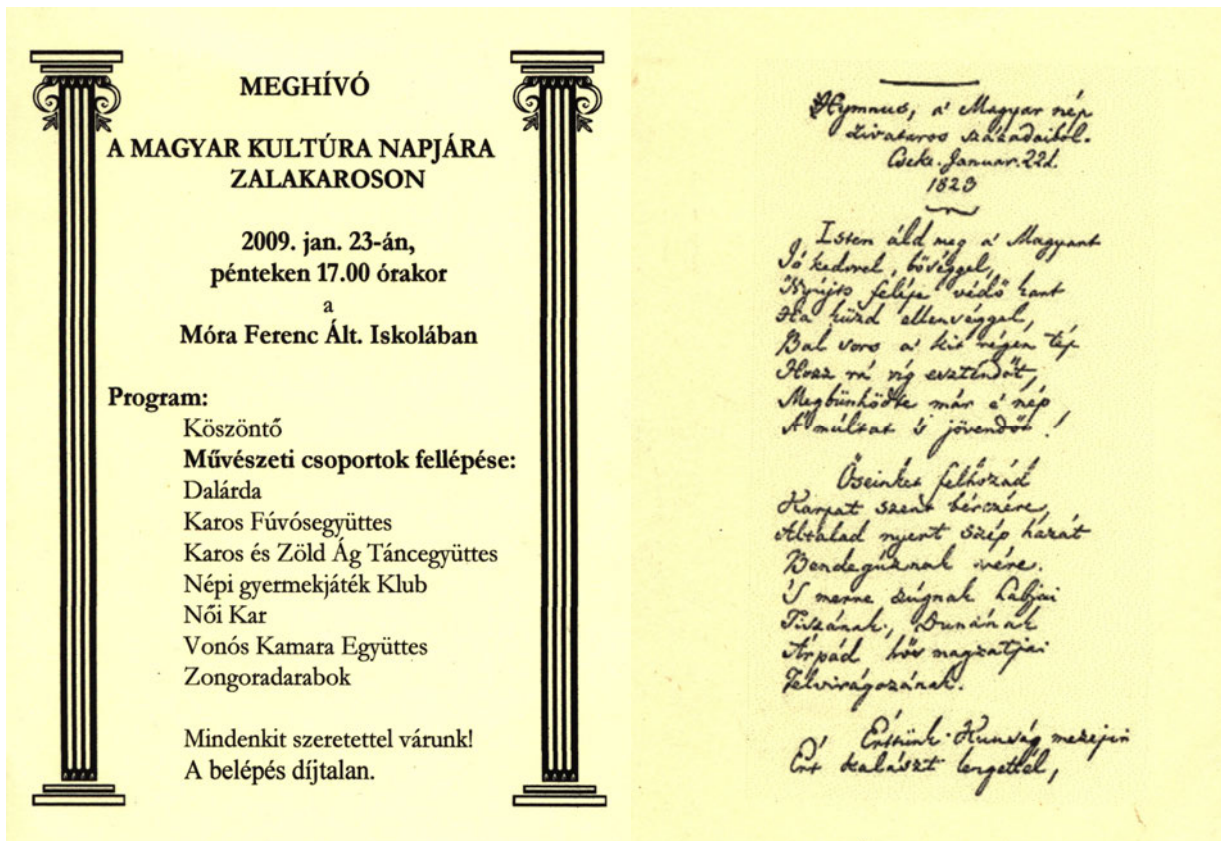 MEGHÍVÓ
A MAGYAR KULTÚRA NAPJÁRA
ZALAKAROSON
2009. jan. 23-án,
pénteken 17.00 órakor
a
Móra Ferenc Ált. Iskolában
Program:
Köszöntő
Művészeti csoportok fellépése:
Dalárda
Karos Fúvósegyüttes
Karos és Zöld Ág Táncegyüttes
Népi gyermekjáték Klub
Női Kar
Vonós Kamara Együttes
Zongoradarabok
Mindenkit szeretettel várunk!
A belépés díjtalan.
Hymnus, a' Magyar nép
zivataros századaiból.
Cseke. Januar. 22d.
1823
Isten áld meg a' Magyart
Jó kedvvel, bőséggel,
Nyújts feléje védő kart
Ha küzd ellenséggel,
Bal sors a' kit régen tép
Hozz rá víg esztendőt,
Megbűnhődte már e' nép
A' múltat 's jövendőt!
Őseinket felhozád
Kárpát szent bérczére,
Általad nyert szép hazát
Bendegúznak vére.
'S merre zúgnak habjai
Tiszának, Dunának
Árpád hős magzatjai
Felvirágozának.
Értünk Kunság mezején
Ért kalászt lengettél,